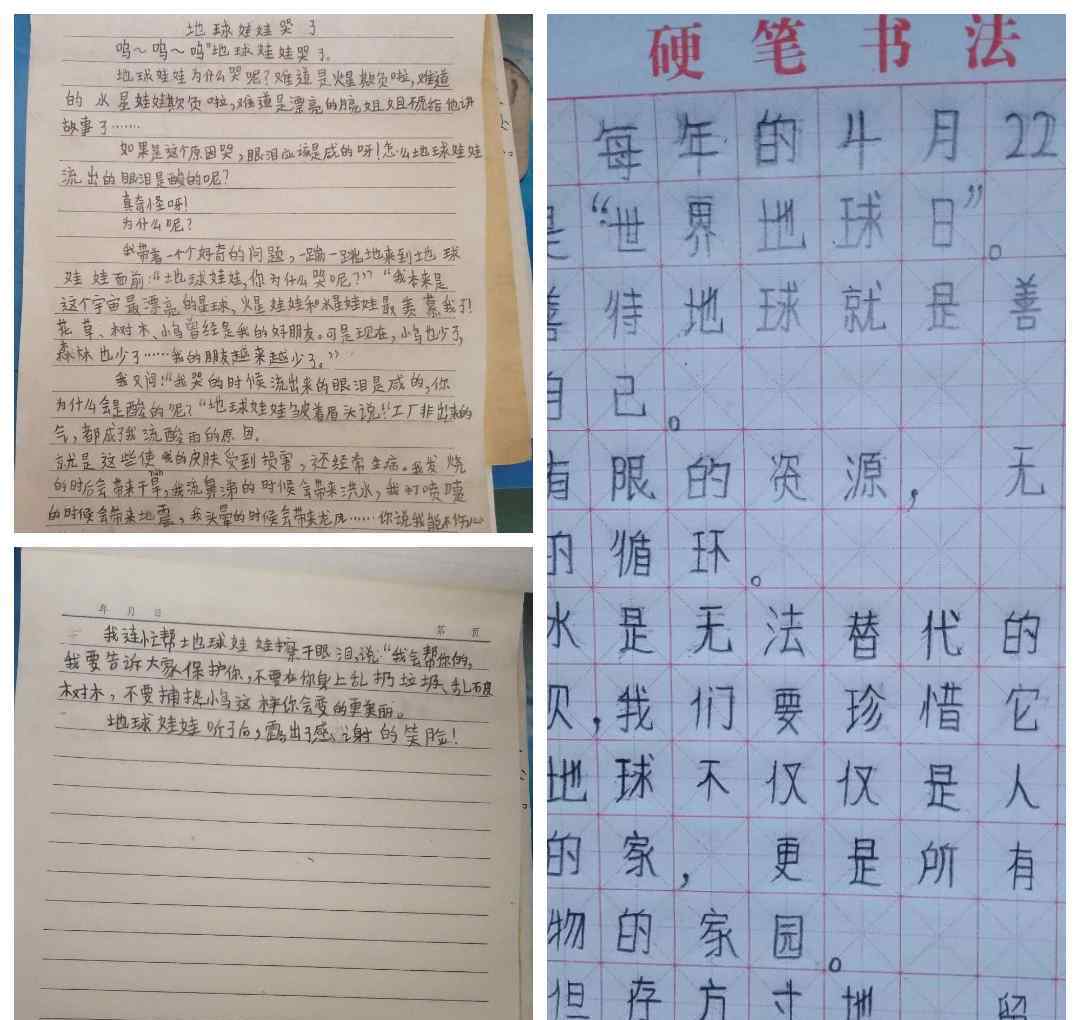 地球娃娃哭了
呜~呜~呜"地球娃娃哭了。
地球娃娃为什么哭呢?难道是火星欺负啦,难道
的水星娃娃欺负啦,难道是漂亮的月亮姐姐不给他讲
故事了……
如果是这个原因哭,眼泪应该是咸的呀!怎么地球娃娃
流出的眼泪是酸的呢?
真奇怪呀!
为什么呢?
我带着一个个好奇的问题,一蹦一跳地来到地球
娃娃面前:"地球娃娃,你为什么哭呢?""我本来是
这个宇宙最漂亮的星球,火星娃娃和水星娃娃最羡慕我了!
花草、树木、小鸟曾经是我的好朋友。可是现在,小鸟也少了,
森林也少了……我的朋友越来越少了。"
我又问:"我哭的时候流出来的眼泪是咸的,你
为什么会是酸的呢?"地球娃娃皱着眉头说:"工厂排出来的
气,都成了我流酸雨的原因。
就是这些使我的皮肤受到损害,还经常生病。我发烧
的时后会带来干旱,我流鼻涕的时候会带来洪水,我打喷嚏
的时候会带来地震,我头晕的时候会带来龙风……你说我能不伤心
年 月 日
第 页
我连忙帮地球娃娃擦干眼泪,说:"我会帮你的,
我要告诉大家保护你,不要在你身上乱扔垃圾、乱砍
树木,不要捕捉小鸟这样你会变的更美丽。
地球娃娃听了后,露出了感谢的笑脸!
硬笔书法
每年的4月22
是"世界地球日"。
善待地球就是善
自己。
有限的资源,无
的循环。
水是无法替代的
贝,我们要珍惜它
地球不仅仅是人
的家,更是所有
物的家园。
但存方寸地 留